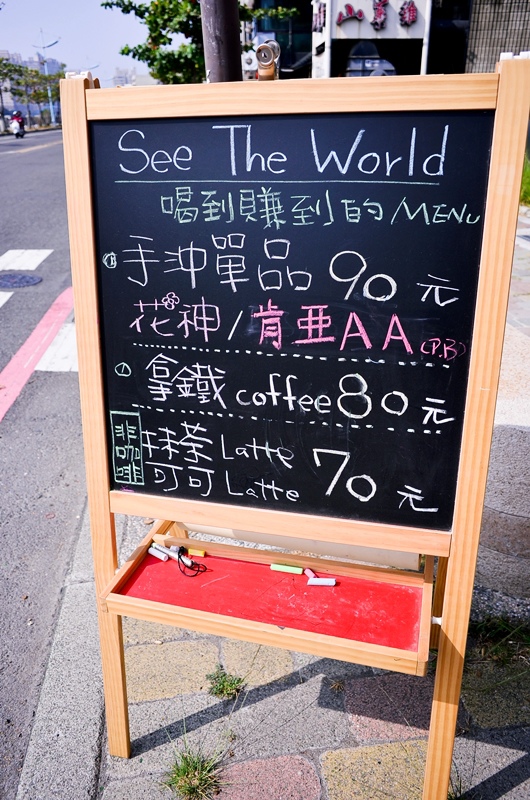 See The World
喝到賺到的/MENU
手沖單品 90元
花神/肯亜AA(P.B)
拿鐵coffee 80元
非咖啡
抹茶Latte
可可Latte
70元